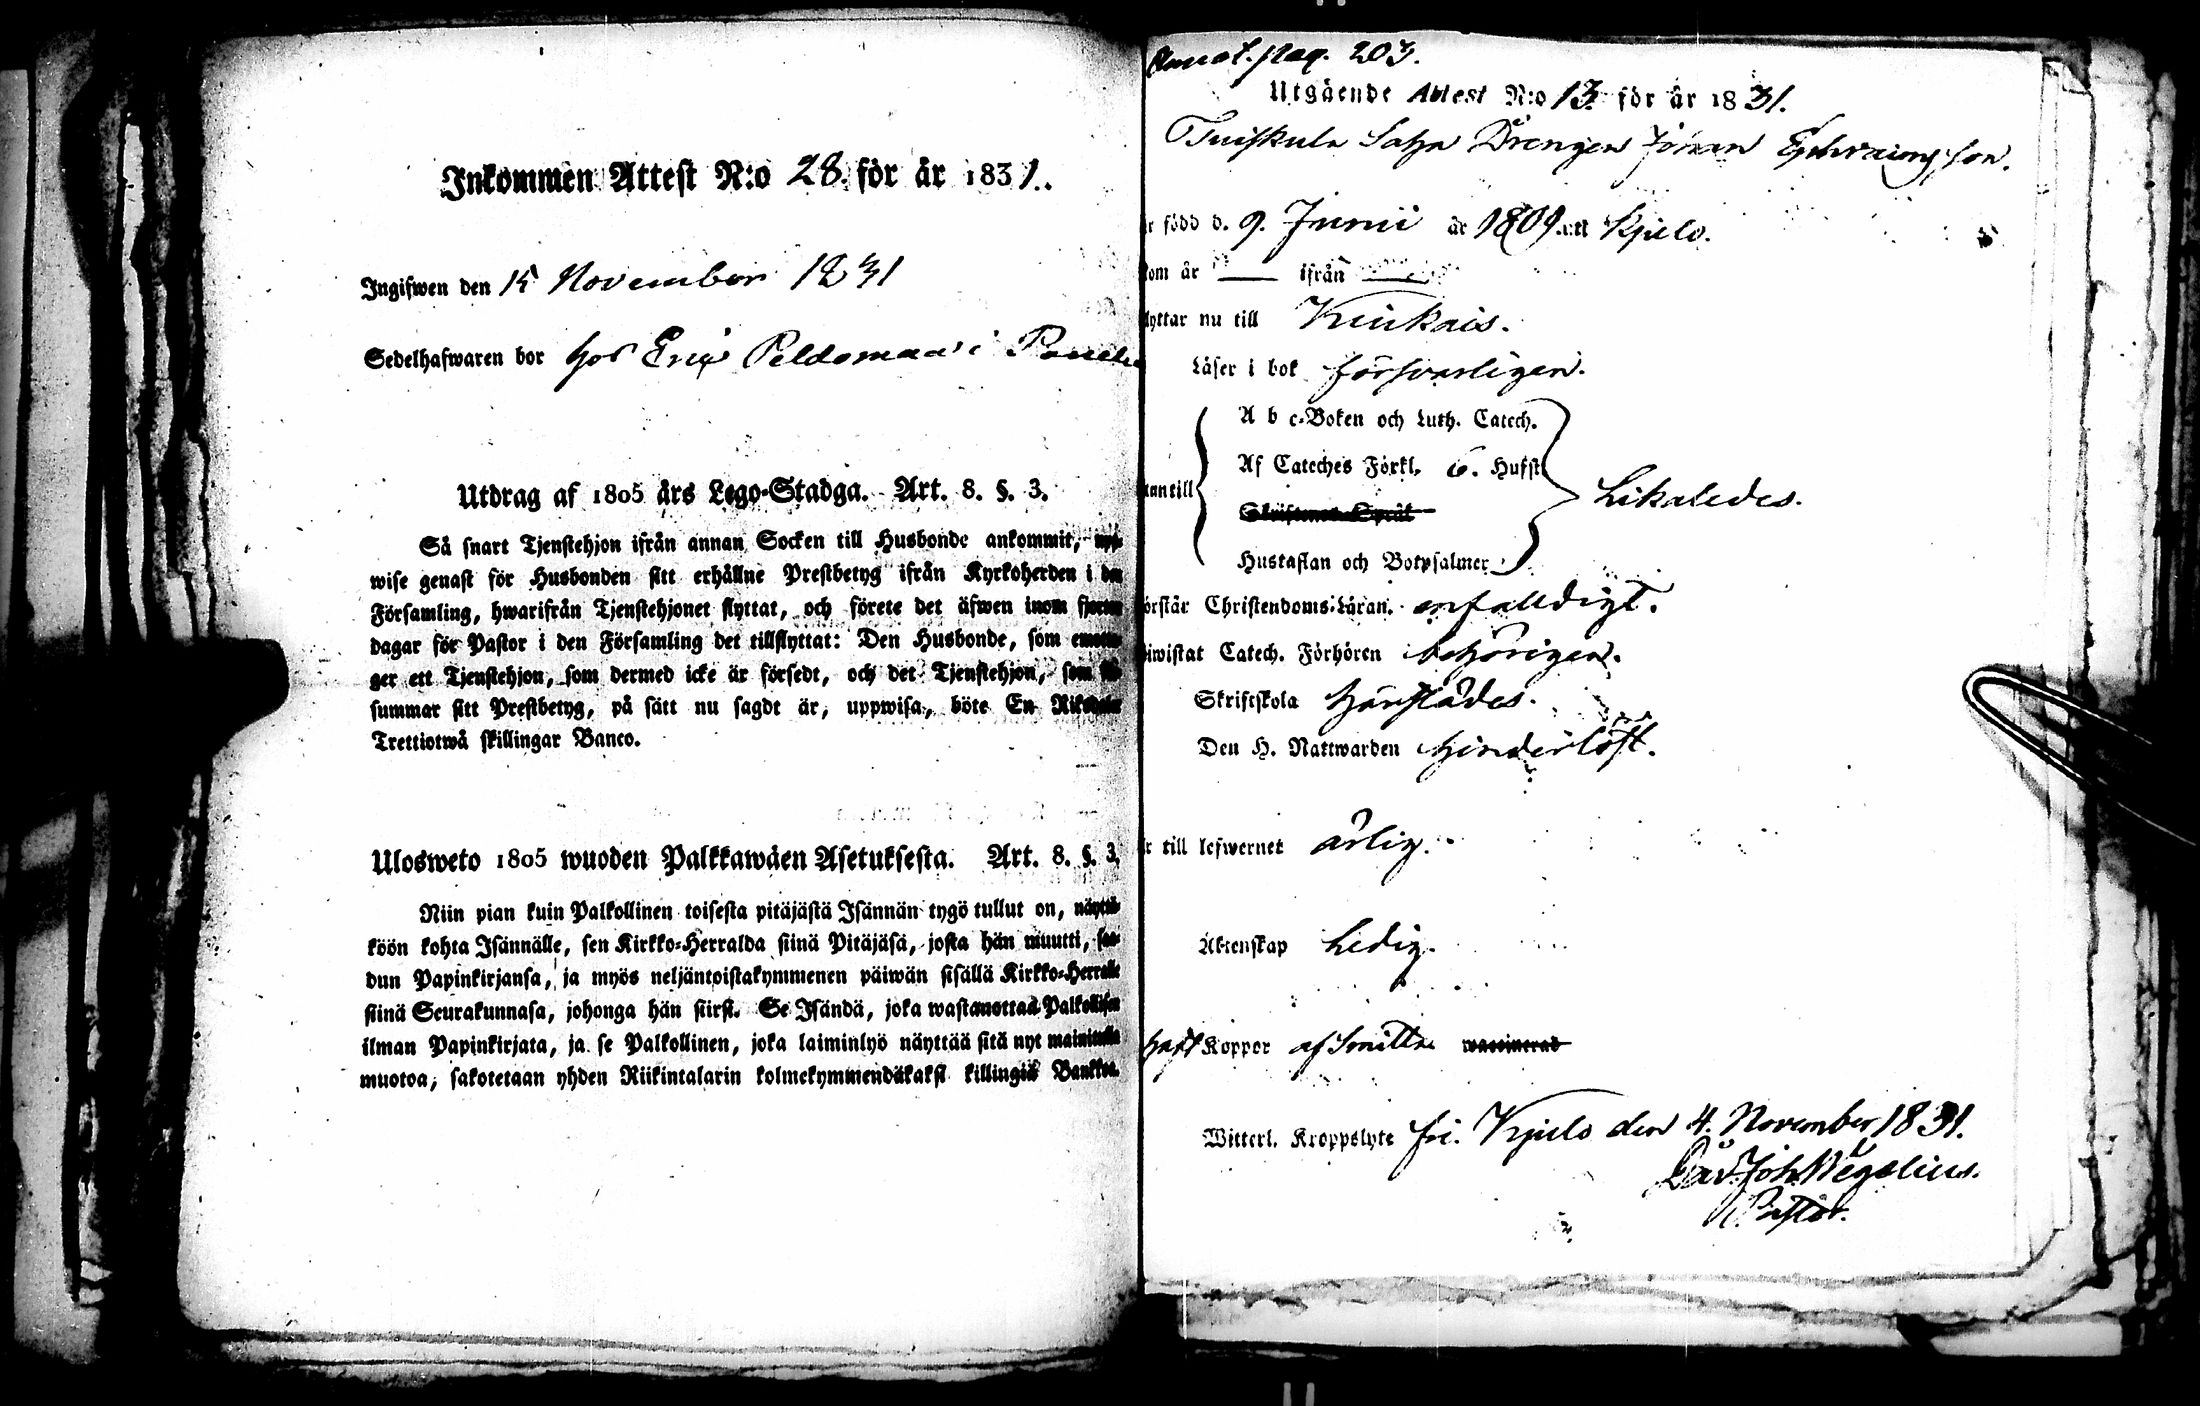 Inkommen Attest N:o 28. för år 1831.
Ingifwen den 15 November 1831
Sedelhafwaren bor hos Eric Peldomaa i
Utdrag af 1805 års Lego-Stadga. Art. 8. §. 3.
Så snart Tjenstehjon ifrån annan Socken till Husbonde ankommit, upp-
wise genast för Husbonden sitt erhållne Prestbetyg ifrån Kyrkoherden i den
Församling, hwarifrån Tjenstehjonet flyttat, och förete det äfwen inom fjorton
dagar för Pastor i den Församling det tillflyttat: Den Husbonde, som emotta-
ger ett Tjenstehjon, som dermed icke är försedt, och det Tjenstehjon, som
summar sitt Prestbetyg, på sätt nu sagdt är, uppwisa, böte En Riksdaler
Trettiotwå skillingar Banco.
Ulosweto 1805 wuoden Palkkawäen Asetuksesta. Art. 8. §. 3.
Niin pian kuin Palkollinen toisesta pitäjästä Isännän tygö tullut on, näyttä-
köön kohta Isännälle, sen Kirkko-Herralda siinä Pitäjäsä, josta hän muutti, saa-
dun Papinkirjansa, ja myös neljäntoistakymmenen päiwän sisällä Kirkko-Herralle
siinä Seurakunnasa, johonga hän siirst. Se Isändä, joka wastanottaa Palkollisen
ilman Papinkirjata, ja se Palkollinen, joka laiminlyö näyttää sitä nyt mainitulla
muotoa, sakotetaan yhden Riikintalarin kolmekymmendäkaksi killingiä Bankkoa.
Annot. pag. 203.
Utgående Attest N:o 13. för år 1831.
Tuiskula Drengen Johan Ephraimsson.
är född d. 9. Junii år 1809. uti Kjulo.
kom år — ifrån —
flyttar nu till Kiukais.
Läser i bok försvarligen.
A b c-Boken och Luth. Catech.
Af Cateches Förkl. 6. Hufst.
kan till Likaledes.
Skriftenes Språk
Hustaflan och Botpsalmer
förstår Christendoms Läran enfalldigt.
biwistat Catech. Förhören behörigen.
Skriftskola härstädes.
Den H. Nattwarden hinderlöst.
är till lefwernet ärlig.
Äktenskap Ledig.
haft Koppor af Smitta waccinerad
Witterl. Kroppslyte fri. Kjulo den 4. November 1831.
Dav. Joh. Wegelius.
Pastor.